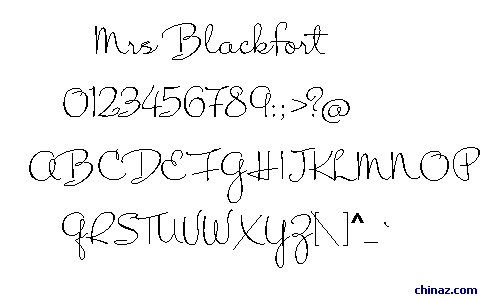 Mrs Blackfort
0123456789:;>?@
ABCDEFGHIJKLMNOP
QRSTUVWXYZ[\]^_`
chinaz.com